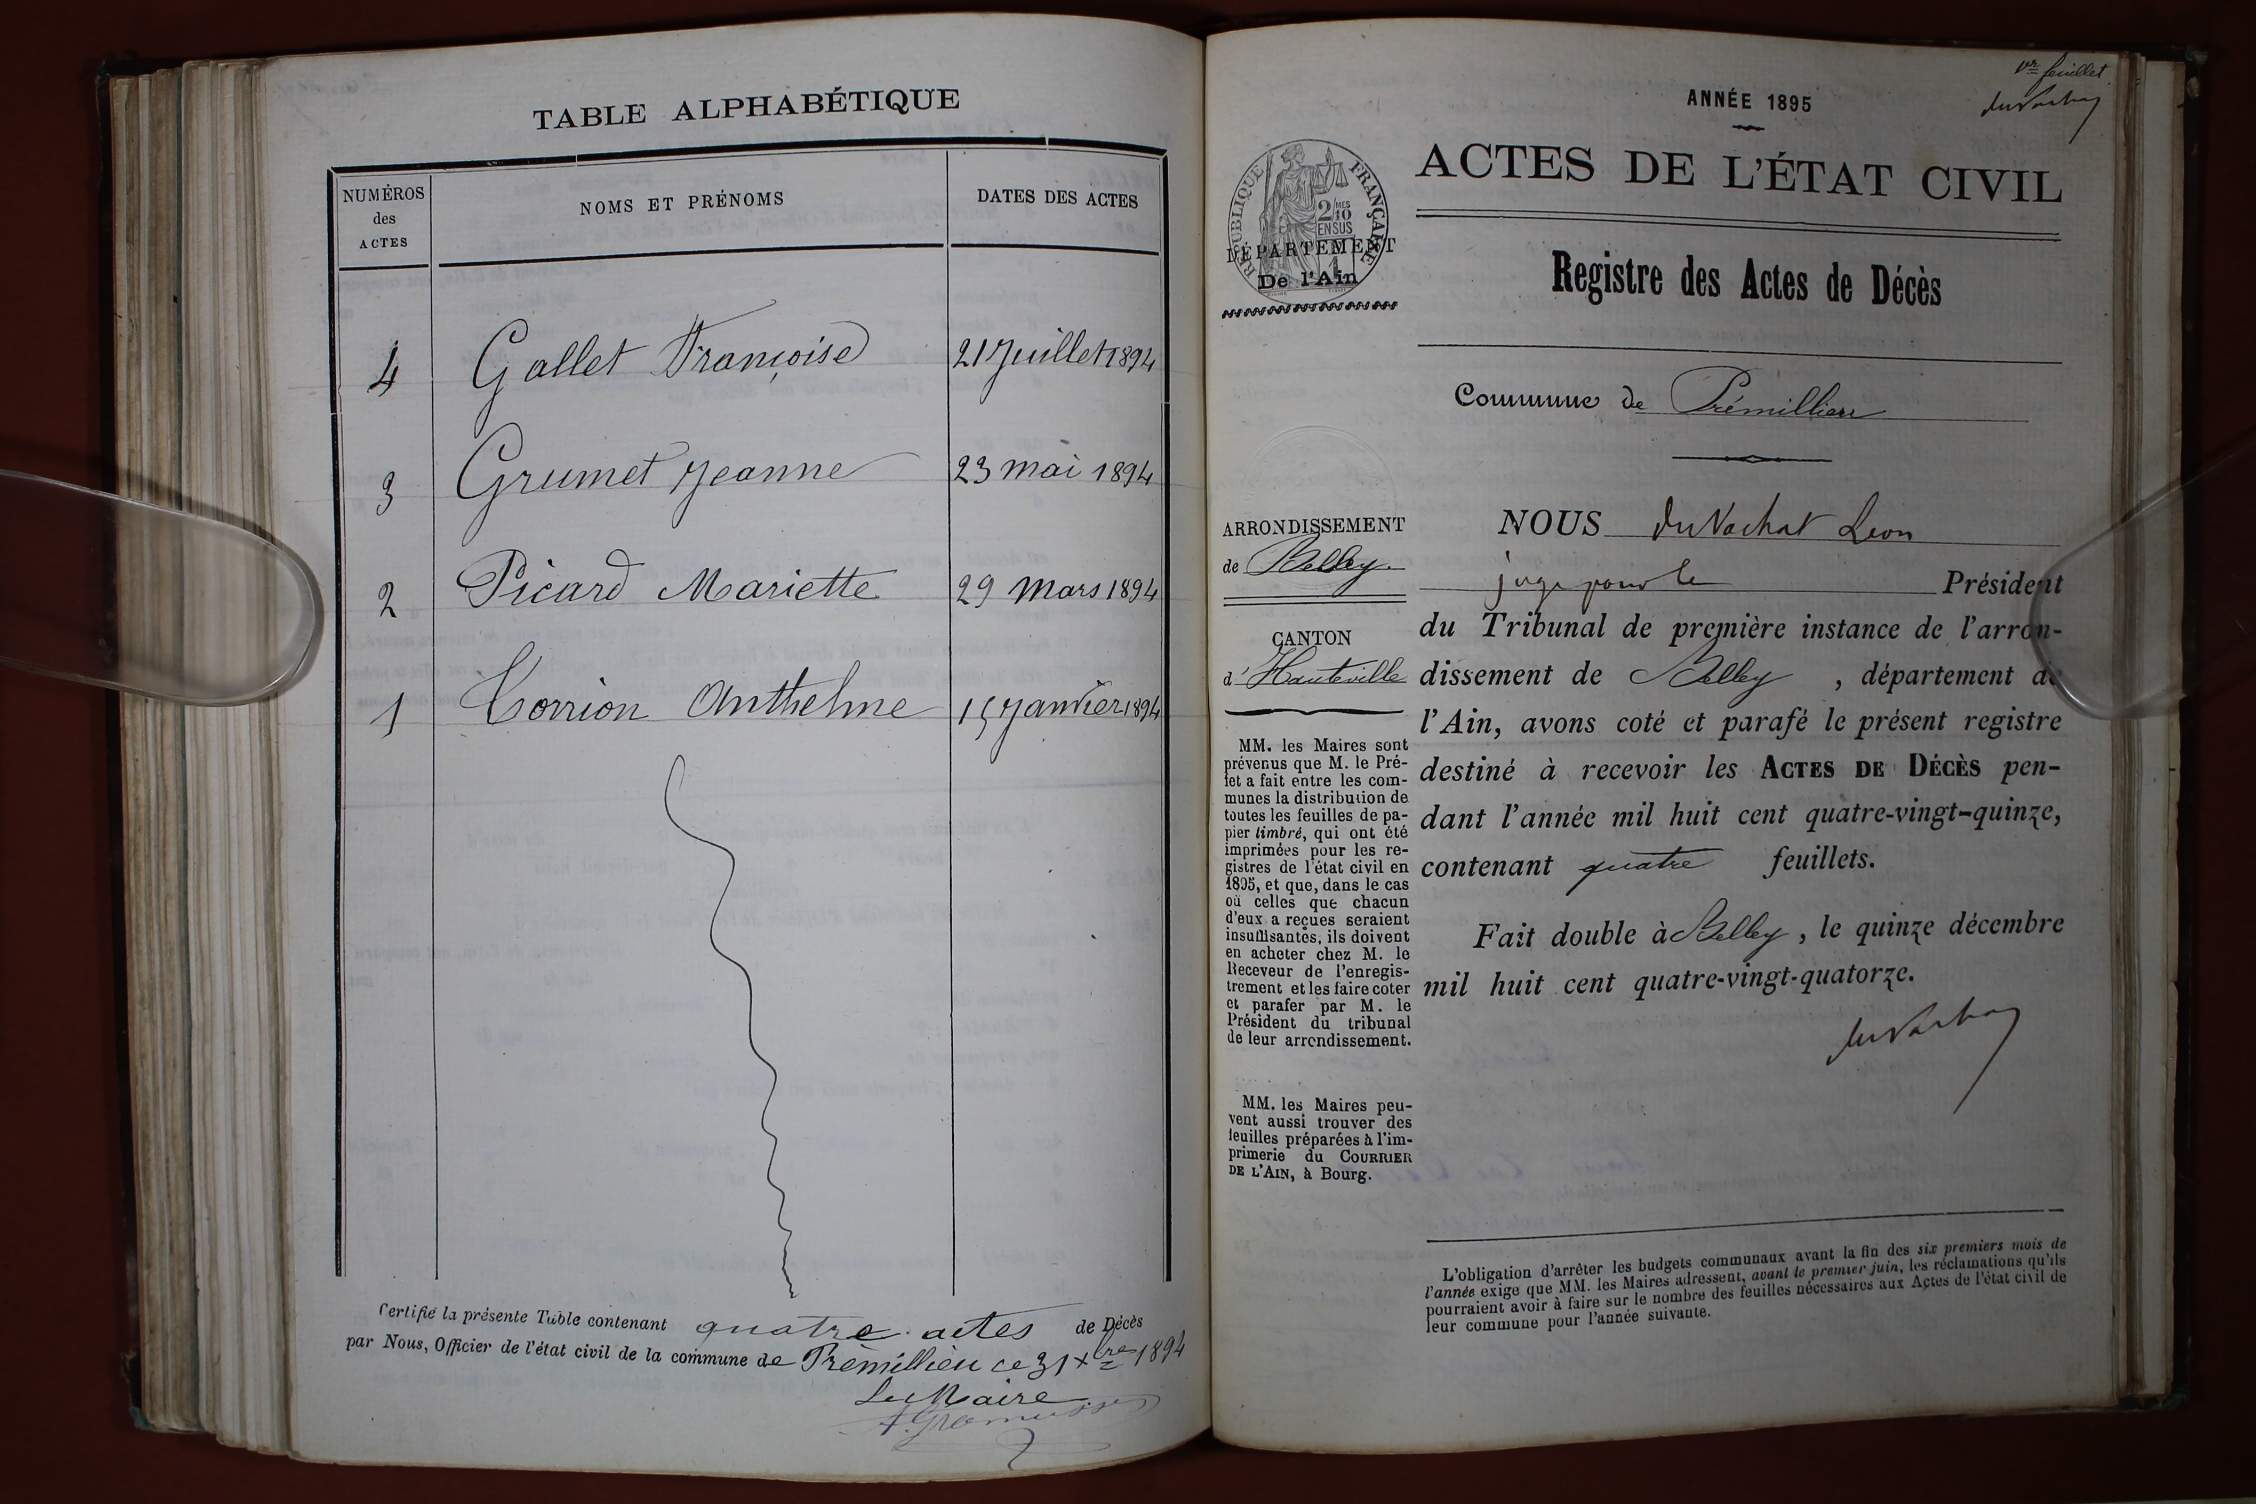 TABLE ALPHABÉTIQUE
NUMÉROS
des
ACTES
NOMS ET PRÉNOMS
DATES DES ACTES
4 Gallet Françoise 21 Juillet 1894
3 Grumet Jeanne 23 mai 1894
2 Picard Mariette 29 Mars 1894
1 Corrion Anthelme 15 Janvier 1894
Certifié la présente Table contenant quatre actes de Décès
par Nous, Officier de l'état civil de la commune de Prémillieu ce 31 Xbre 1894
Le Maire
ANNÉE 1895
1er feuillet
duVachat
ACTES DE L'ÉTAT CIVIL
RÉPUBLIQUE FRANÇAISE
2/10 MES
EN SUS
DÉPARTEMENT
De l'Ain
Registre des Actes de Décès
Commune de Prémillieu
ARRONDISSEMENT
de Belley
CANTON
d'Hauteville
MM. les Maires sont
prévenus que M. le Pré-
fet a fait entre les com-
munes la distribution de
toutes les feuilles de pa-
pier timbré, qui ont été
imprimées pour les re-
gistres de l'état civil en
1895, et que, dans le cas
où celles que chacun
d'eux a reçues seraient
insuffisantes, ils doivent
en acheter chez M. le
Receveur de l'enregis-
trement et les faire coter
et parafer par M. le
Président du tribunal
de leur arrondissement.
MM. les Maires peu-
vent aussi trouver des
feuilles préparées à l'im-
primerie du COURRIER
DE L'AIN, à Bourg.
NOUS du Vachat Leon
juge pour le Président
du Tribunal de première instance de l'arron-
dissement de Belley, département de
l'Ain, avons coté et parafé le présent registre
destiné à recevoir les ACTES DE DÉCÈS pen-
dant l'année mil huit cent quatre-vingt-quinze,
contenant quatre feuillets.
Fait double à Belley, le quinze décembre
mil huit cent quatre-vingt-quatorze.
duVachat
L'obligation d'arrêter les budgets communaux avant la fin des six premiers mois de
l'année exige que MM. les Maires adressent, avant le premier juin, les réclamations qu'ils
pourraient avoir à faire sur le nombre des feuilles nécessaires aux Actes de l'état civil de
leur commune pour l'année suivante.